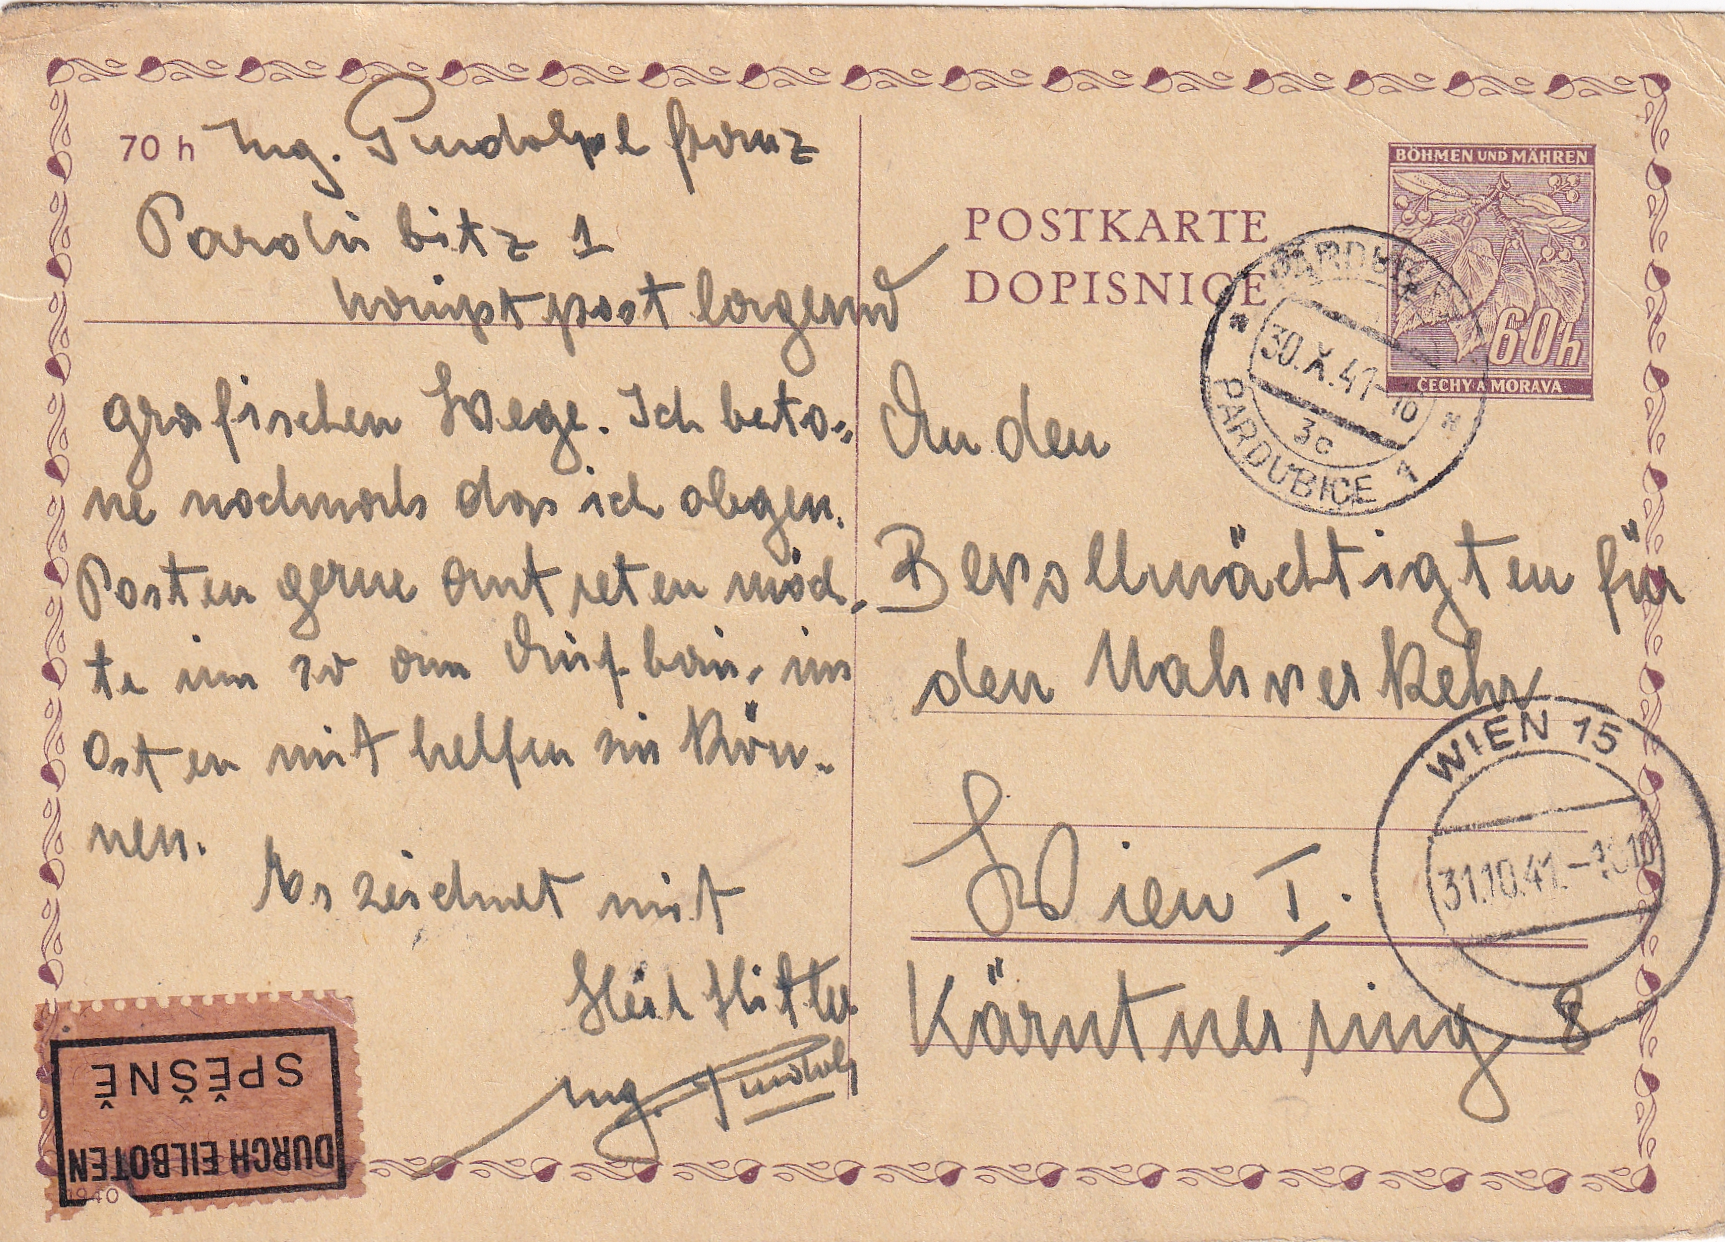 70 h Ing. Pudolph Franz
Pardubitz 1
hauptpostlagernd
grafischen Wege. Ich beto-
ne nochmals das ich obgen.
Posten gerne antreten möch-
te um so am Aufbau im
Osten mit helfen zu kön-
nen.
Es zeichnet mit
Heil Hitler
Ing.
POSTKARTE
DOPISNICE
BÖHMEN UND MÄHREN
60h
ČECHY A MORAVA
30.X.41-16
3c
PARDUBICE 1
An den
Bevollmächtigten für
den Nahverkehr
Wien I.
Kärntnerring 8
WIEN 15
31.10.41.-
SPĚŠNĚ
DURCH EILBOTEN
1940